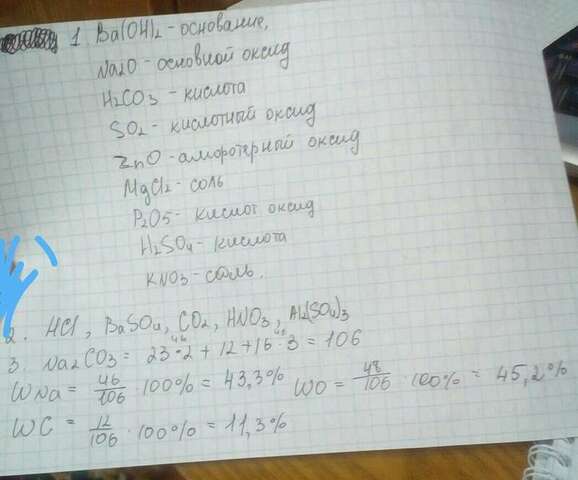 1. Ba(OH)2 - основание,
Na2O - основной оксид
H2CO3 - кислота
SO2 - кислотный оксид
ZnO - аморотерный оксид
MgCl2 - соль
P2O5 - кислот оксид
H2SO4 - кислота
KNO3 - соль.
2. HCl, BaSO4, CO2, HNO3, Al2(SO4)3
46 48
3. Na2CO3 = 23·2 + 12 + 16·3 = 106
WNa = 46/106 · 100% = 43,3% WO = 48/106 · 100% = 45,2%
WC = 12/106 · 100% = 11,3%